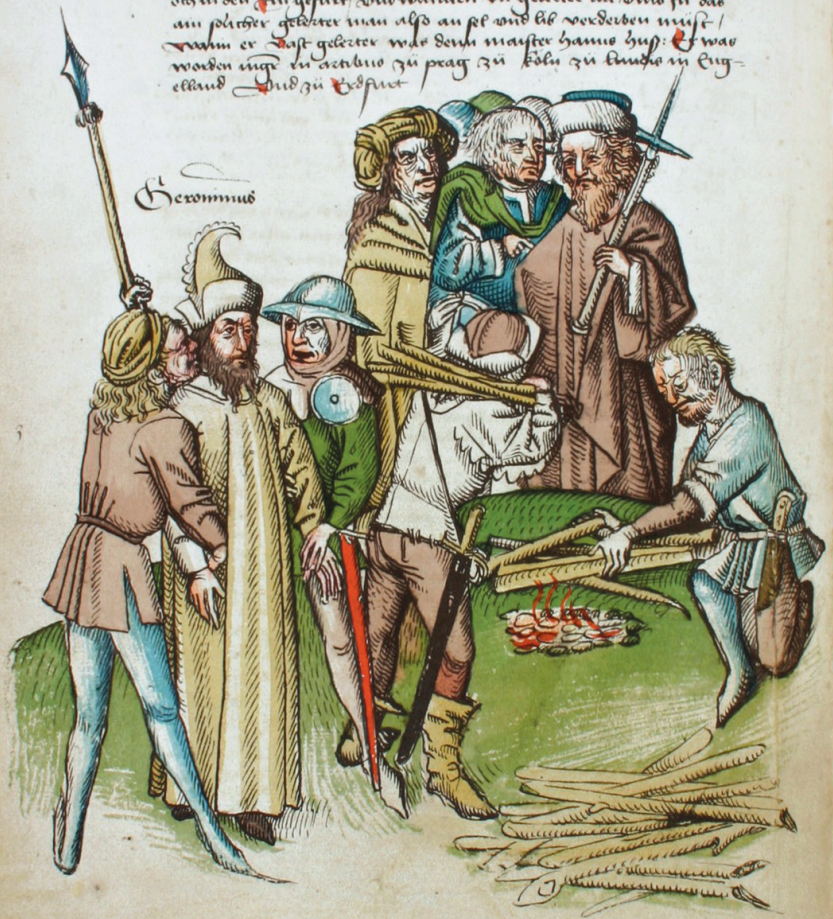 ain solicher gelerter man also an sel vnd lib verderben müst /
Wann er vast gelerter was denn maister hanns huss: Er was
worden mgr in artibus zü prag zü köln zü in Eng=
elland Vnd zü Erdfurt
Geronimus